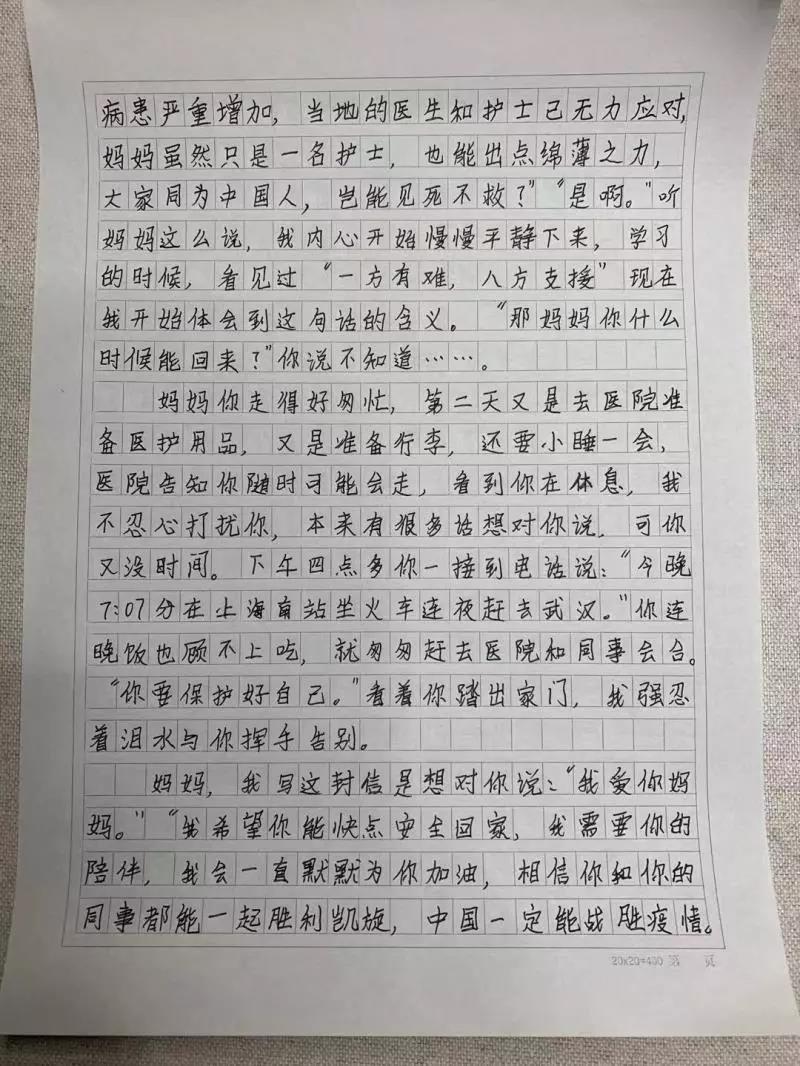 病患严重增加，当地的医生和护士已无力应对，
妈妈虽然只是一名护士，也能出点绵薄之力，
大家同为中国人，岂能见死不救？”“是啊。”听
妈妈这么说，我内心开始慢慢平静下来，学习
的时候，看见过“一方有难，八方支接”现在
我开始体会到这句话的含义。“那妈妈你什么
时候能回来？”你说不知道……。
妈妈你走得好匆忙，第二天又是去医院准
备医护用品，又是准备行李，还要小睡一会，
医院告知你随时可能会走，看到你在体息，我
不忍心打扰你，本来有很多话想对你说，可你
又没时间。下午四点多你一接到电话说：“今晚
7:07分在上海南站坐火车连夜赶去武汉。”你连
晚饭也顾不上吃，就匆匆赶去医院和同事会合。
“你要保护好自己。”看着你踏出家门，我强忍
着泪水与你挥手告别。
妈妈，我写这封信是想对你说：“我爱你妈
妈。”“我希望你能快点安全回家，我需要你的
陪伴，我会一直默默为你加油，相信你和你的
同事都能一起胜利凯旋，中国一定能战胜疫情。
20×20=400 第 页